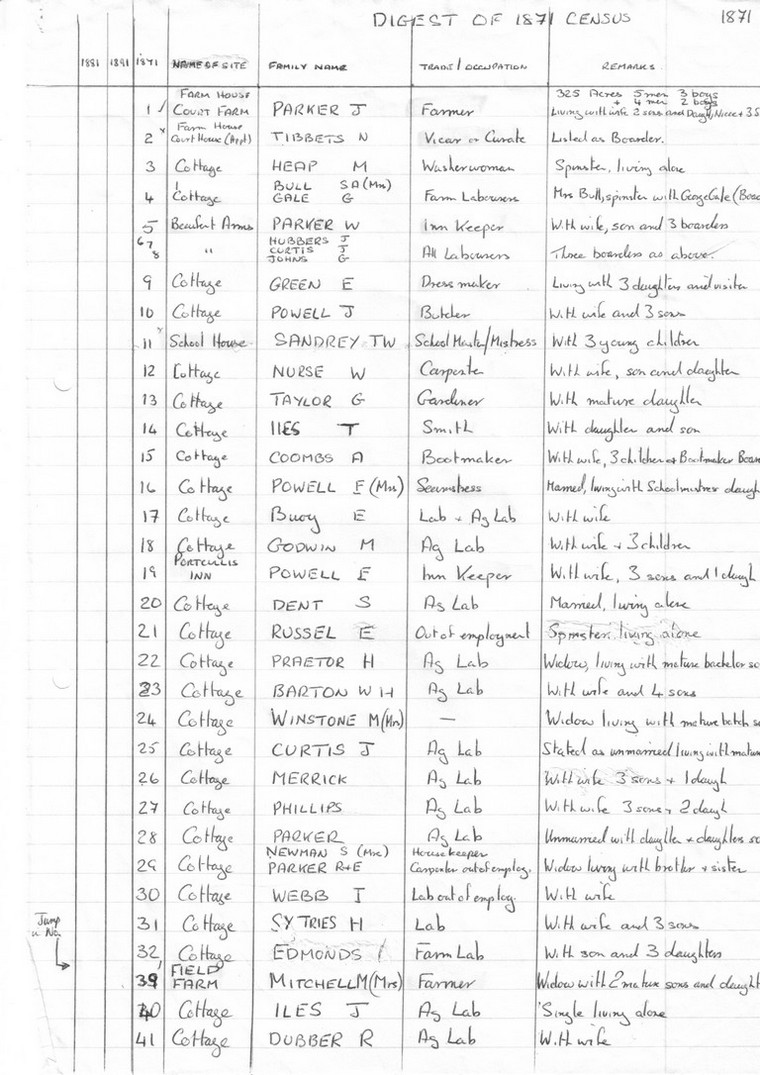 DIGEST OF 1871 CENSUS 1871
1881 1891 1871 NAME OF SITE FAMILY NAME TRADE/OCCUPATION REMARKS
FARM HOUSE 325 Acres 5 men 3 boys
+ 4 men 2 boys
1 COURT FARM PARKER J Farmer Living with wife 2 sons and Daug, Niece + 3 S
Farm House
2 Court House (Appt) TIBBETS N Vicar or Curate Listed as Boarder.
3 Cottage HEAP M Washerwoman Spinster, living alone
BULL SA (Mrs)
4 Cottage GALE G Farm Labourers Mrs Bull, spinster with George Gale (Boa
5 Beaufort Arms PARKER W Inn Keeper With wife, son and 3 boarders
6 HUBBERS J
7 " CURTIS J All Labourers Three boarders as above.
8 JOHNS G
9 Cottage GREEN E Dressmaker Living with 3 daughters and visitor
10 Cottage POWELL J Butcher With wife and 3 sons
11 School House SANDREY TW School Master/Mistress With 3 young children
12 Cottage NURSE W Carpenter With wife, son and daughter
13 Cottage TAYLOR G Gardiner With mature daughter
14 Cottage ILES T Smith With daughter and son
15 Cottage COOMBS A Bootmaker With wife, 3 children + Bootmaker Boar
16 Cottage POWELL F (Mrs) Seamstress Married, living with Schoolmistress daugh
17 Cottage Buoy E Lab + Ag Lab With wife
18 Cottage GODWIN M Ag Lab With wife + 3 children
PORTCULLIS
19 INN POWELL E Inn Keeper With wife, 3 sons and 1 daugh
20 Cottage DENT S Ag Lab Married, living alone
21 Cottage RUSSEL E Out of employment Spinster living alone
22 Cottage PRAETOR H Ag Lab Widow, living with mature bachelor so
23 Cottage BARTON W H Ag Lab With wife and 4 sons
24 Cottage WINSTONE M (Mrs) — Widow living with mature batch s
25 Cottage CURTIS J Ag Lab Stated as unmarried living with mature
26 Cottage MERRICK Ag Lab With wife 3 sons + 1 daugh
27 Cottage PHILLIPS Ag Lab With wife 3 sons + 2 daugh
28 Cottage PARKER Ag Lab Unmarried with daughter + daughters so
NEWMAN S (Mrs) Housekeeper
29 Cottage PARKER R+E Carpenter out of employ. Widow living with brother + sister
30 Cottage WEBB I Lab out of employ. With wife
31 Cottage SYTRIES H Lab With wife and 3 sons
Jump
in No.
32 Cottage EDMONDS / Farm Lab With son and 3 daughters
FIELD
39 FARM MITCHELL M (Mrs) Farmer Widow with 2 mature sons and daught
40 Cottage ILES J Ag Lab Single living alone
41 Cottage DUBBER R Ag Lab With wife